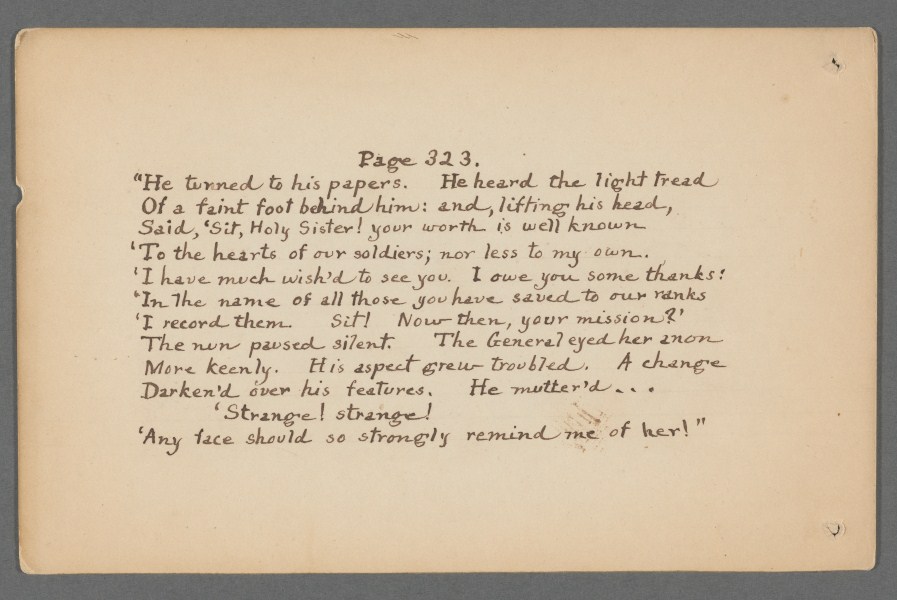 Page 323.
"He turned to his papers. He heard the light tread
Of a faint foot behind him: and, lifting his head,
Said, 'Sit, Holy Sister! your worth is well known
'To the hearts of our soldiers; nor less to my own.
'I have much wish'd to see you. I owe you some thanks:
'In the name of all those you have saved to our ranks
'I record them. Sit! Now then, your mission?'
The nun paused silent. The General eyed her anon
More keenly. His aspect grew troubled. A change
Darken'd over his features. He mutter'd . . .
'Strange! strange!
'Any face should so strongly remind me of her!"